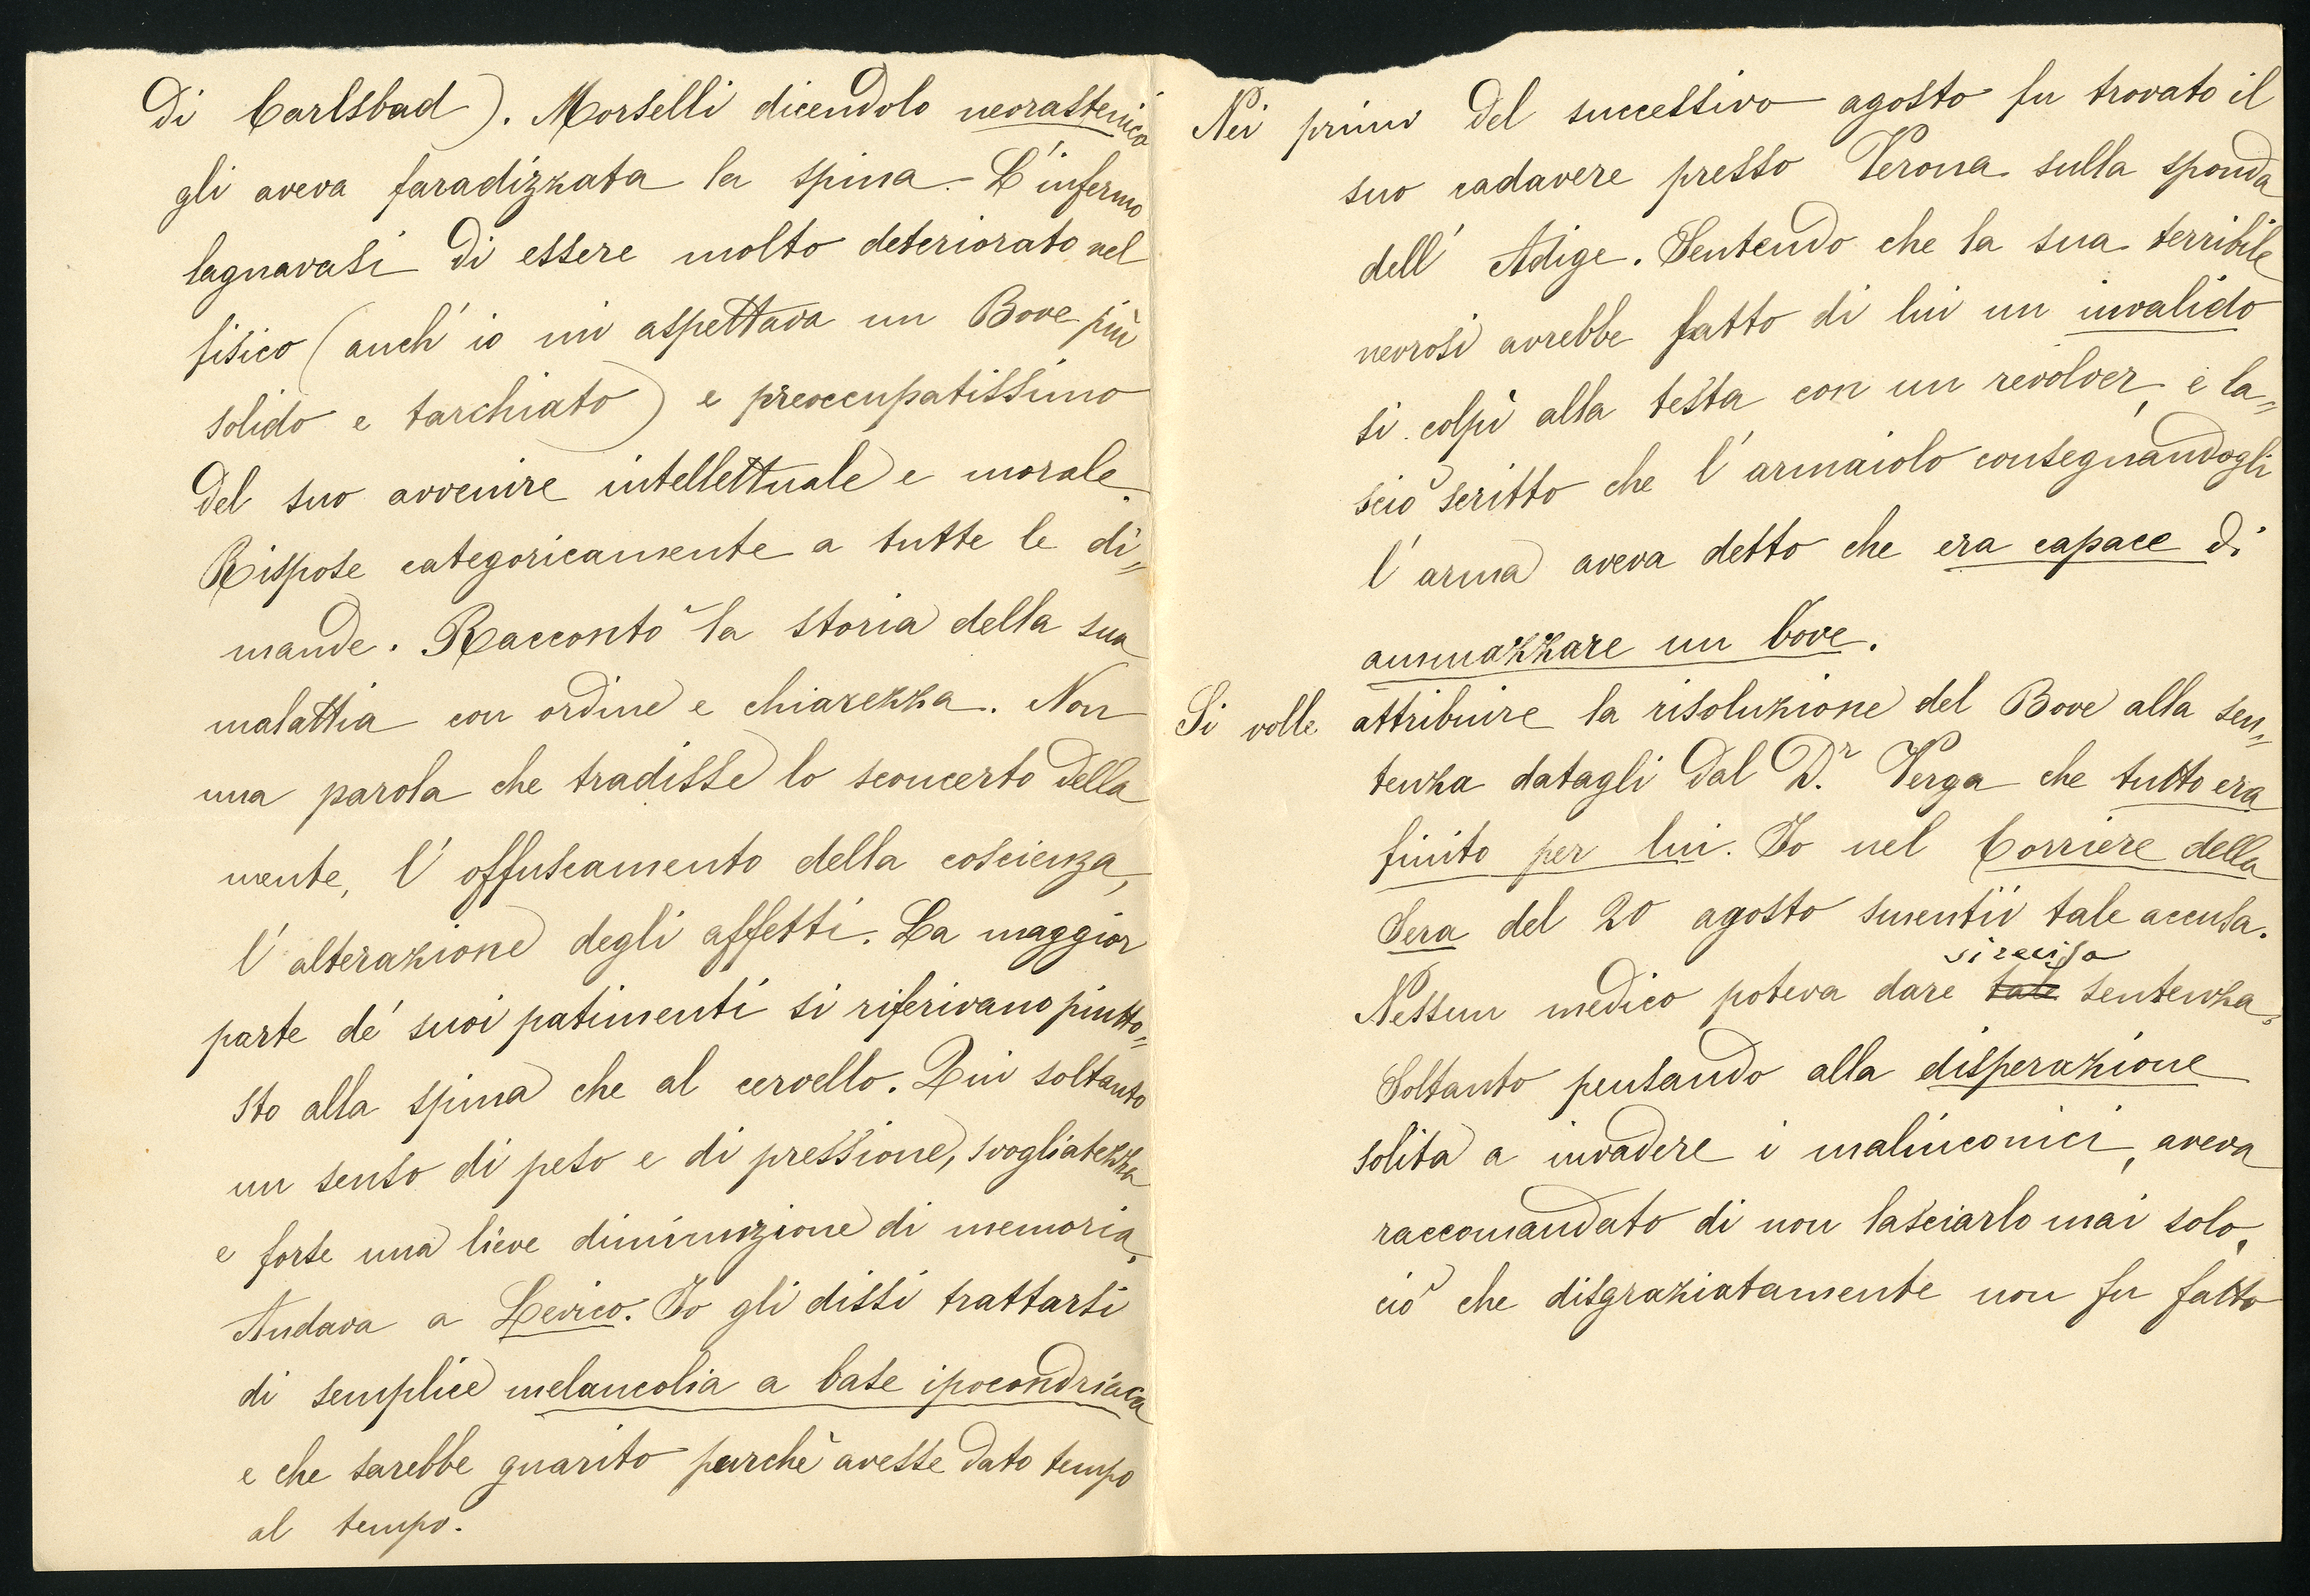 di Carlsbad). Morselli dicendolo neorastenico
gli aveva faradizzata la spina. L'infermo
lagnavasi di essere molto deteriorato nel
fisico (anch' io mi aspettava un Bove più
solido e tarchiato) e preoccupatissimo
del suo avvenire intellettuale e morale.
Rispose categoricamente a tutte le di=
mande. Raccontò la storia della sua
malattia con ordine e chiarezza. Non
una parola che tradisse lo sconcerto della
mente, l' offuscamento della coscienza,
l' alterazione degli affetti. La maggior
parte de' suoi patimenti si riferivano piutto=
sto alla spina che al cervello. Qui soltanto
un senso di peso e di pressione, svogliatezza
e forse una lieve diminuzione di memoria.
Andava a Levico. Io gli dissi trattarsi
di semplice melancolia a base ipocondriaca
e che sarebbe guarito purchè avesse dato tempo
al tempo.
Nei primi del successivo agosto fu trovato il
suo cadavere presso Verona sulla sponda
dell' Adige. Sentendo che la sua terribile
nevrosi avrebbe fatto di lui un invalido
si colpì alla testa con un revolver, e la=
sciò scritto che l' armaiolo consegnandogli
l' arma aveva detto che era capace di
ammazzare un bove.
Si volle attribuire la risoluzione del Bove alla sen=
tenza datagli dal Dr. Verga che tutto era
finito per lui. Io nel Corriere della
Sera del 20 agosto smentii tale accusa.
si recisa
Nessun medico poteva dare tale sentenza.
Soltanto pensando alla disperazione
solita a invadere i malinconici, aveva
raccomandato di non lasciarlo mai solo,
ciò che disgraziatamente non fu fatto